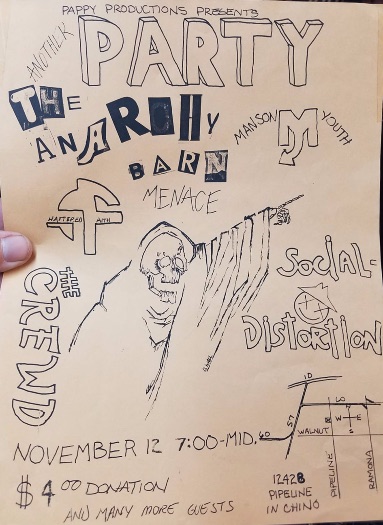 PAPPY PRODUCTIONS PRESENTS
ANOTHER
PARTY
THE
ANARCHY
BARN
MANSON YOUTH
M
MENACE
SHATTERED FAITH
THE
CREWD
SOCIAL-
DISTORTION
10
60
57
WALNUT
N
W E
S
PIPELINE
RAMONA
NOVEMBER 12 7:00-MID.
$4.00 DONATION
AND MANY MORE GUESTS
12428
PIPELINE
IN CHINO